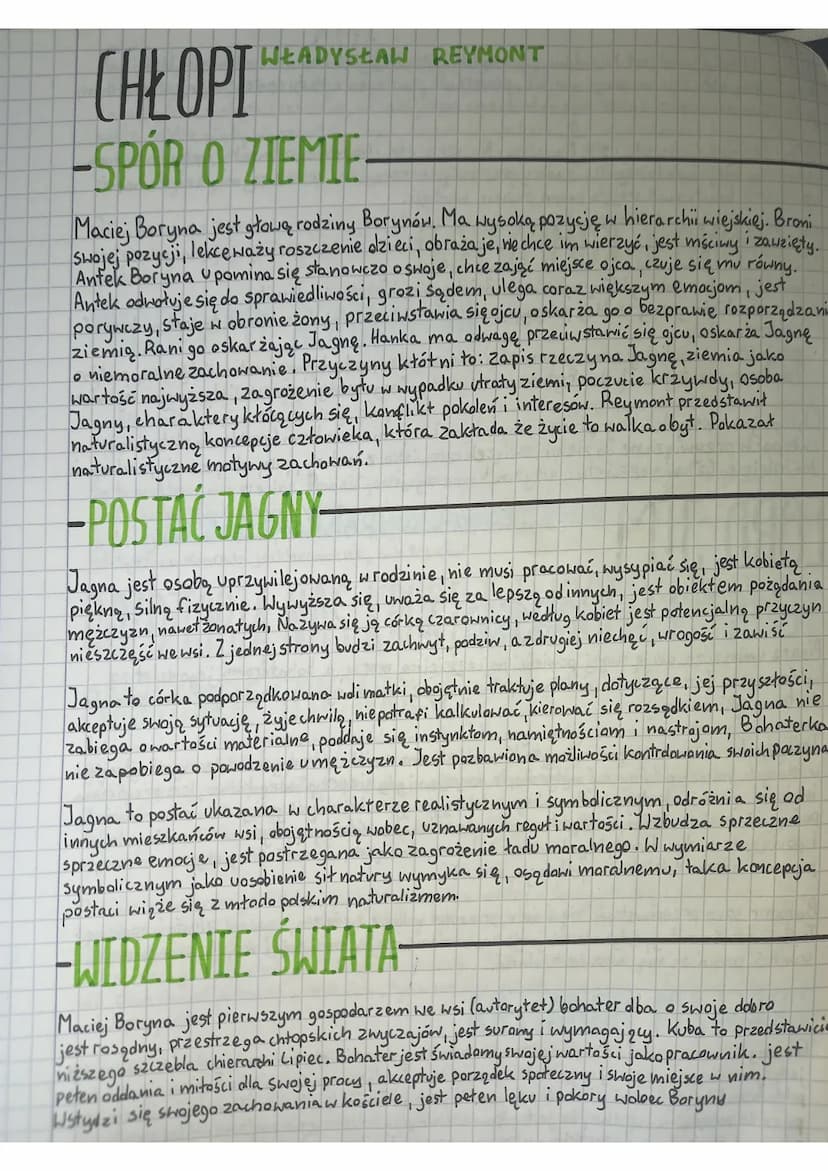 CHŁOPI WŁADYSŁAW REYMONT
-SPÓR O ZIEMIE
Maciej Boryna jest głową rodziny Borynów. Ma wysoką pozycję w hierarchii wiejskiej. Broni
swojej pozycji, lekceważy roszczenie dzieci, obraża je, nie chce im wierzyć, jest mściwy i zawzięty.
Antek Boryna upomina się stanowczo o swoje, chce zająć miejsce ojca, czuje się mu równy.
Antek odwołuje się do sprawiedliwości, grozi sądem, ulega coraz większym emocjom, jest
porywczy, staje w obronie żony, przeciwstawia się ojcu, oskarża go o bezprawie rozporządzani
ziemią. Rani go oskarżając Jagnę. Hanka ma odwagę przeciwstawić się ojcu, oskarża Jagnę
o niemoralne zachowanie. Przyczyny kłótni to: zapis rzeczy na Jagnę, ziemia jako
wartość najwyższa, zagrożenie bytu w wypadku utraty ziemi, poczucie krzywdy, osoba
Jagny, charaktery kłócących się, konflikt pokoleń i interesów. Reymont przedstawił
naturalistyczną koncepcje człowieka, która zakłada że życie to walka o byt. Pokazał
naturalistyczne motywy zachowań.
-POSTAĆ JAGNY
Jagna jest osobą uprzywilejowaną w rodzinie, nie musi pracować, wysypiać się, jest kobietą
piękną, silną fizycznie. Wywyższa się, uważa się za lepszą od innych, jest obiektem pożądania
mężczyzn, nawet żonatych, Nazywa się ją córką czarownicy, według kobiet jest potencjalną przyczyn
nieszczęść we wsi. Z jednej strony budzi zachwyt, podziw, a z drugiej niechęć, wrogość i zawiść
Jagna to córka podporządkowana woli matki, obojętnie traktuje plany, dotyczące, jej przyszłości,
akceptuje swoją sytuację, żyje chwilą, nie potrafi kalkulować, kierować się rozsądkiem, Jagna nie
zabiega o wartości materialne, poddaje się instynktom, namiętnościom i nastrojom, Bohaterka
nie zapobiega o powodzenie u mężczyzn. Jest pozbawiona możliwości kontrolowania swoich poczyna
Jagna to postać ukazana w charakterze realistycznym i symbolicznym, odróżnia się od
innych mieszkańców wsi, obojętnością wobec, uznawanych reguł i wartości. Wzbudza sprzeczne
sprzeczne emocje, jest postrzegana jako zagrożenie ładu moralnego. W wymiarze
symbolicznym jako uosobienie sił natury wymyka się, osądowi moralnemu, taka koncepcja
postaci wiąże się z młodo polskim naturalizmem.
-WIDZENIE ŚWIATA
Maciej Boryna jest pierwszym gospodarzem we wsi (autorytet) bohater dba o swoje dobro
jest rosądny, przestrzega chłopskich zwyczajów, jest surowy i wymagający. Kuba to przedstawicie
niższego szczebla chierarchi Lipiec. Bohater jest świadomy swojej wartości jako pracownik. jest
pełen oddania i miłości dla swojej pracy, akceptuje porządek społeczny i swoje miejsce w nim.
Wstydzi się swojego zachowania w kościele, jest pełen lęku i pokory wobec Boryny